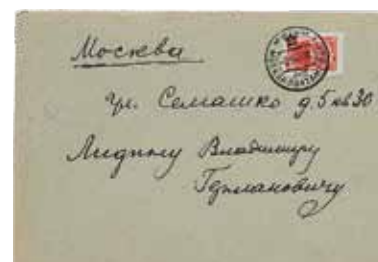 Москва
ул. Семашко д. 5 кв 30
Лидину Владимиру
Германовичу